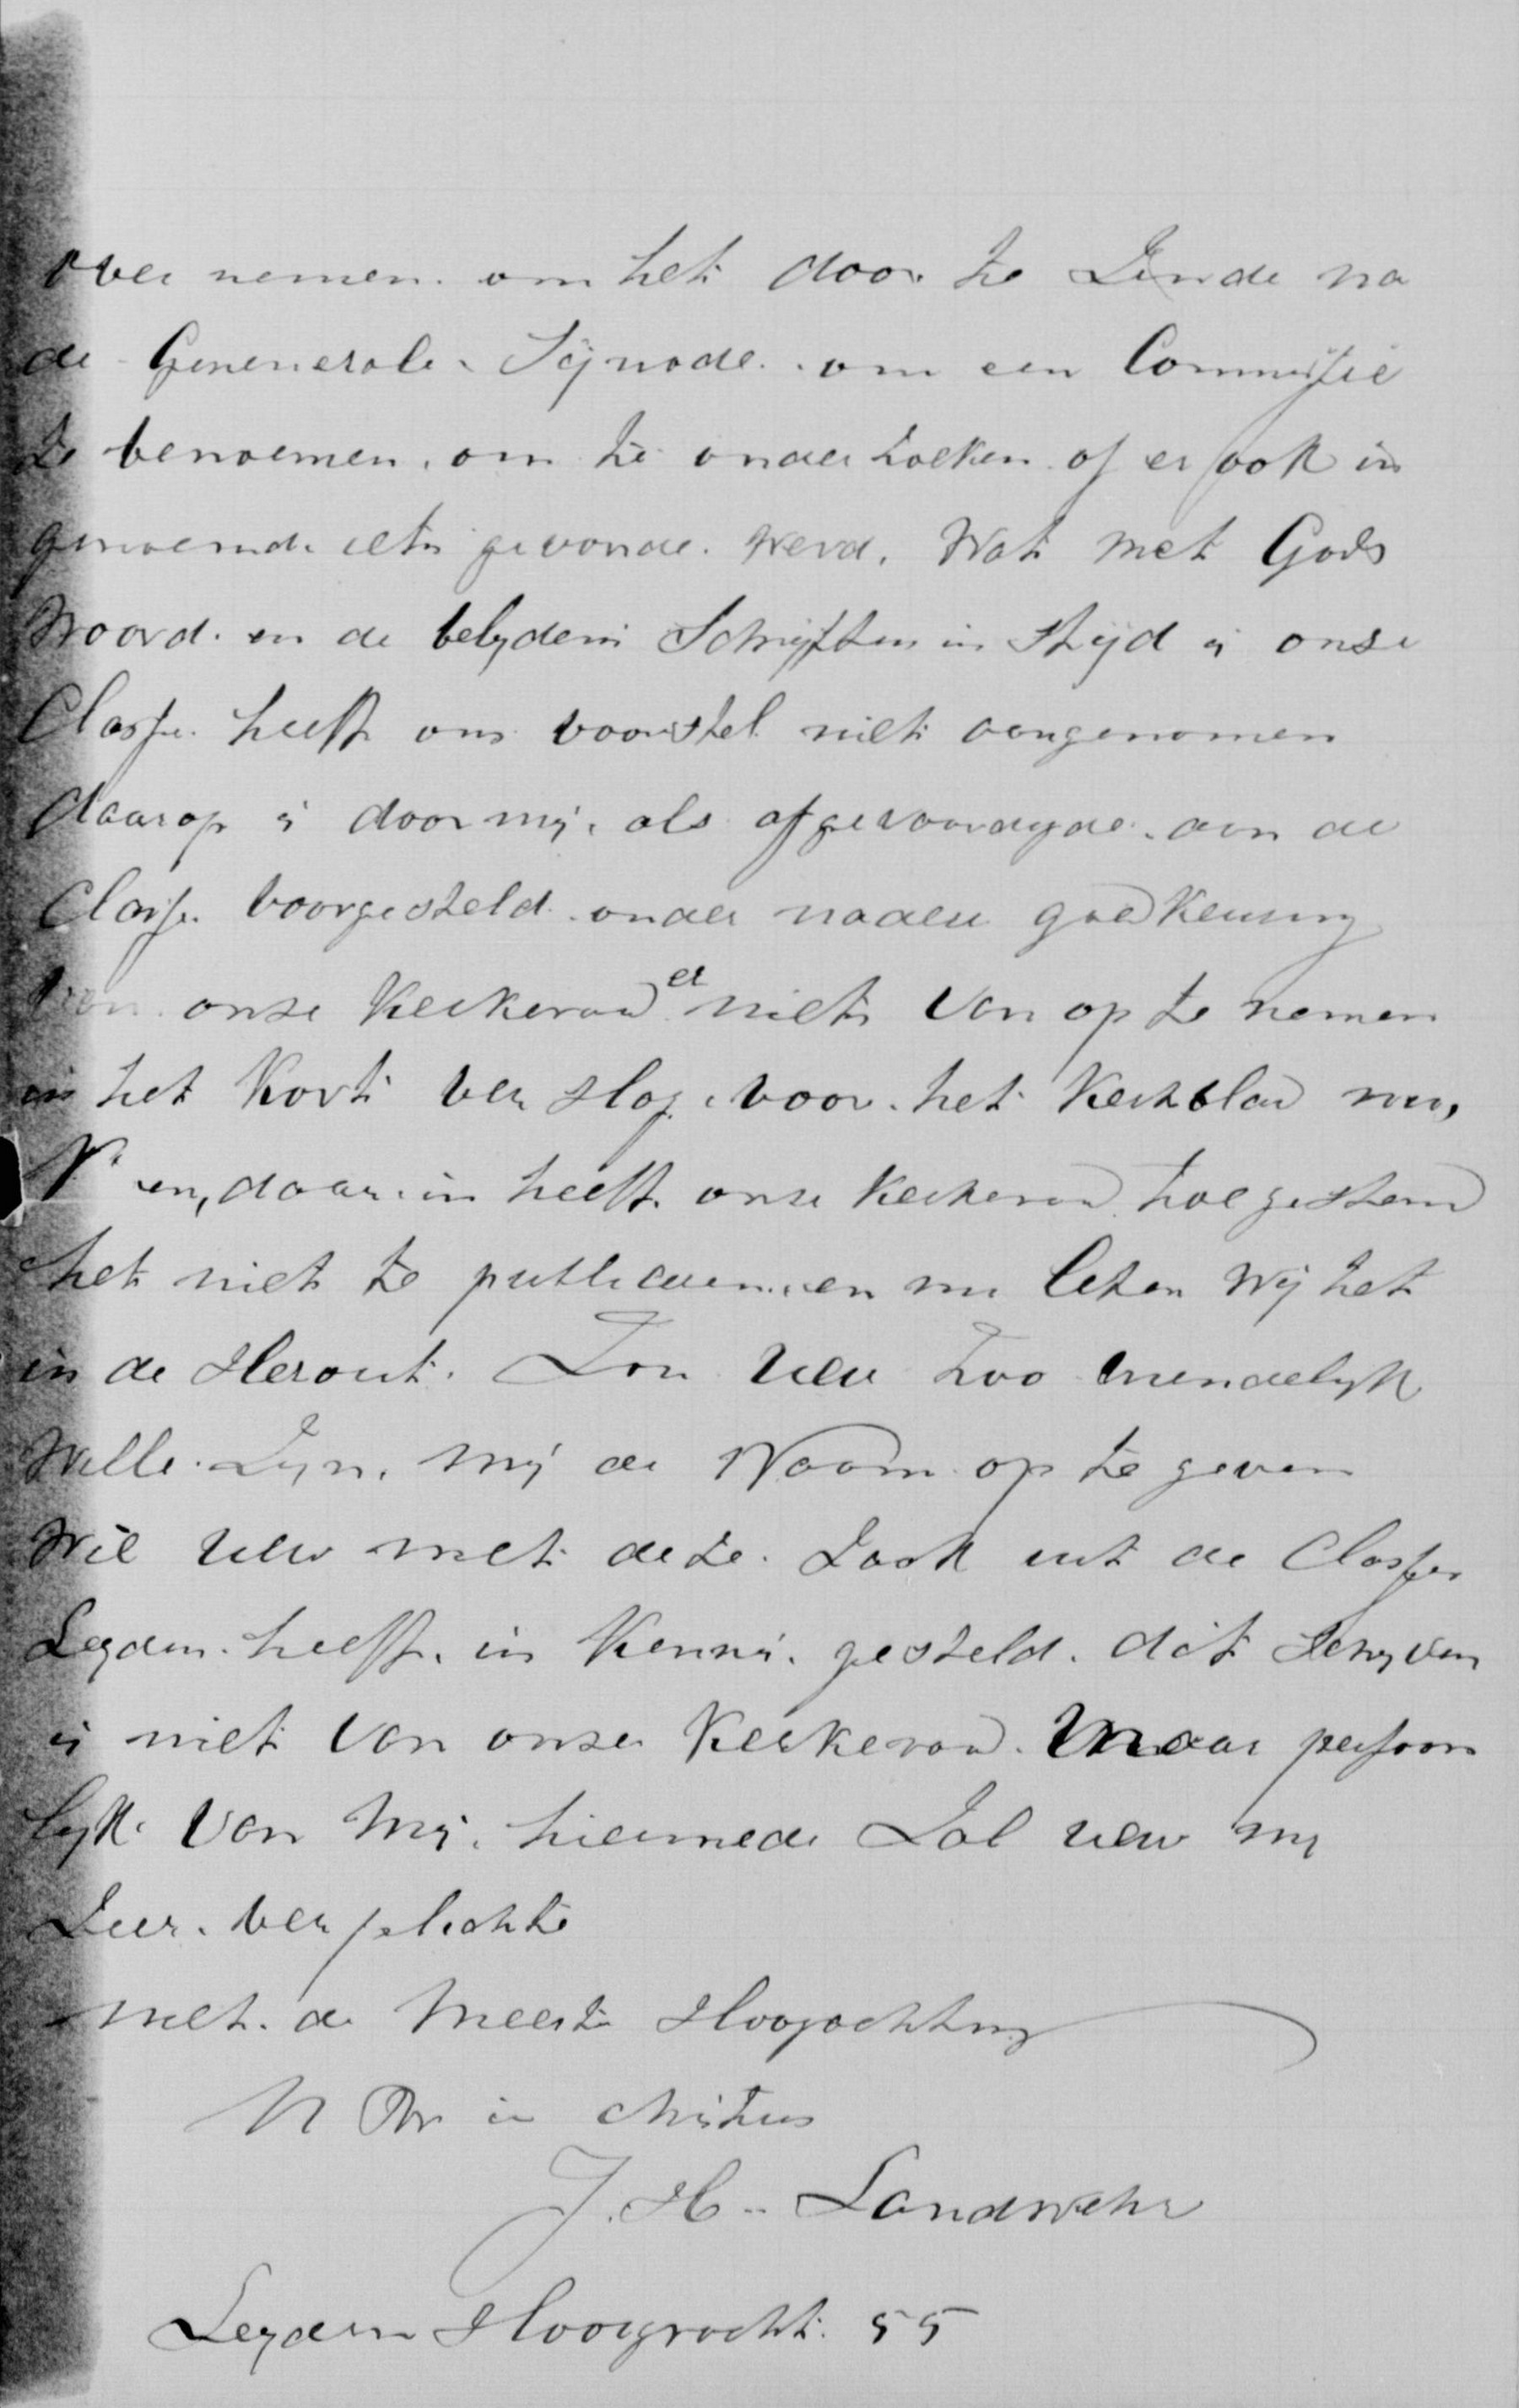 over nemen. om het door te Zende na
de Genenerale Sijnode. om een Commissie
te benoemen. om te onderzoeken of er ook in
genoemde iets gevonde. werd. Wat met Gods
Woord. en de belydenis Schrijften in Strijd is onse
Classse. heeft ons voorstel niet aangenomen
daarop is door mij. als afgevaardigde. aan de
Classe. voorgesteld. onder nadere goedkeuring
Van onse Kerkeraad er niets Van op te nemen
in het Kort ver slag. voor. het Kerkblad no,
en, daar in heeft. onse Kerkeraad toe gestemd
het niet te publiceeren. en nu lezen Wij het
in de Heraut. Zou uew Zoo vriendelijk
Wille. Zyn. mij de Naam op te geven
Wie uew met deze. Zaak uit de Classes
Leyden. heeft. in Kennis. gesteld. dit Schryven
is niet Van onse Kerkeraad. Maar persoon
lyk. Van Mij. hiermede Zal uew my
Zeer. verplichte
met. de Meeste Hoogachting
U Br in Christus
J. H. Landwehr
Leyden Hooygracht. 55